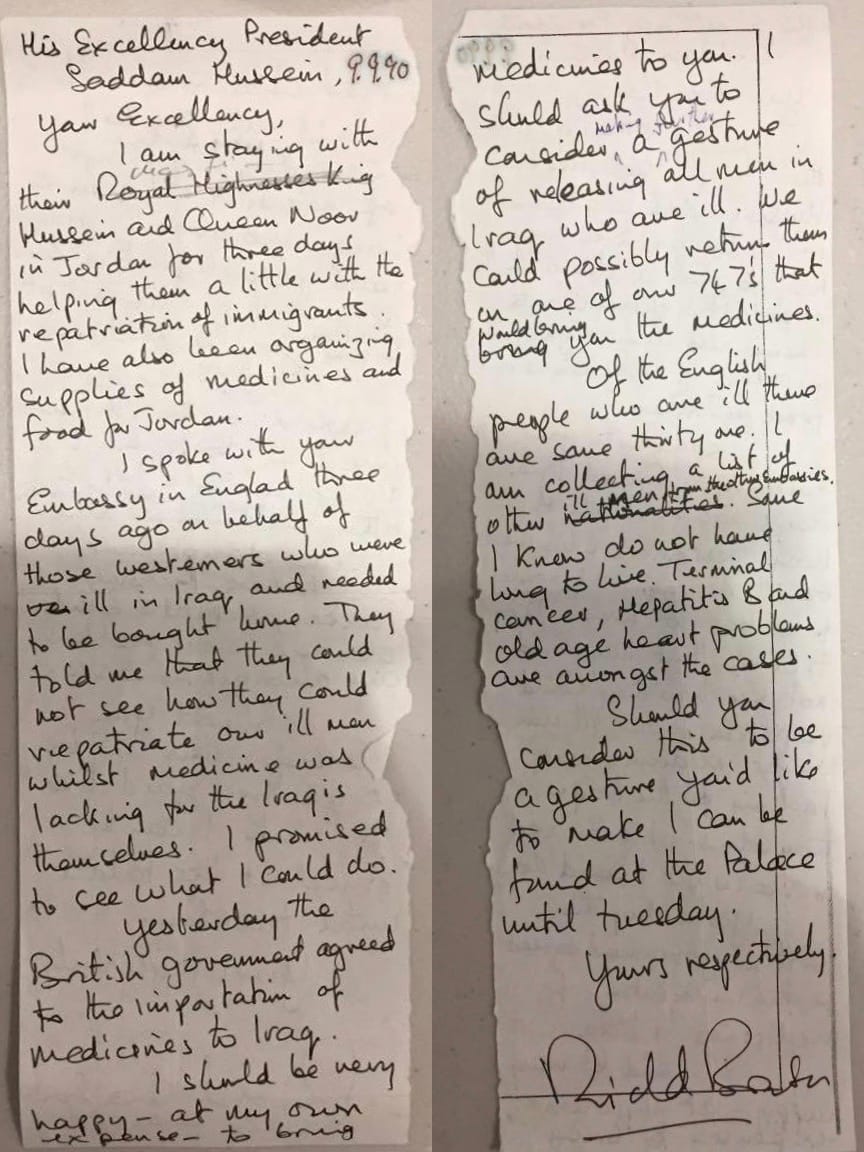 His Excellency President
Saddam Hussein, 9.9.90
Your Excellency,
I am staying with
their Royal Highnesses King
Hussein and Queen Noor
in Jordan for three days
helping them a little with the
repatriation of immigrants.
I have also been organizing
supplies of medicines and
food for Jordan.
I spoke with your
Embassy in Englad three
days ago on behalf of
those westerners who were
ill in Iraq and needed
to be bought home. They
told me that they could
not see how they could
repatriate our ill men
whilst medicine was
lacking for the Iraqis
themselves. I promised
to see what I could do.
Yesterday the
British government agreed
to the importation of
medicines to Iraq.
I should be very
happy - at my own
expense - to bring
medicines to you. I
should ask you to
making further
consider a gesture
of releasing all men in
Iraq who are ill. We
could possibly return them
on one of our 747's that
would bring
bring you the medicines.
Of the English
people who are ill there
are some thirty one. I
am collecting a list of
ill men from the other Embassies.
other nationalities. Some
I know do not have
long to live. Terminal
cancer, Hepatitis B and
old age heart problems
are amongst the cases.
Should you
consider this to be
a gesture you'd like
to make I can be
found at the Palace
until tuesday.
Yours respectively.